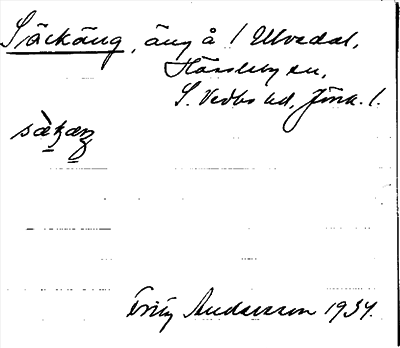 Säckäng, äng å / Ulvedal,
Hässleby sn,
S. Vedbo hd, Jönk. l.
sàkæŋ
Fritz Andersson 1934.